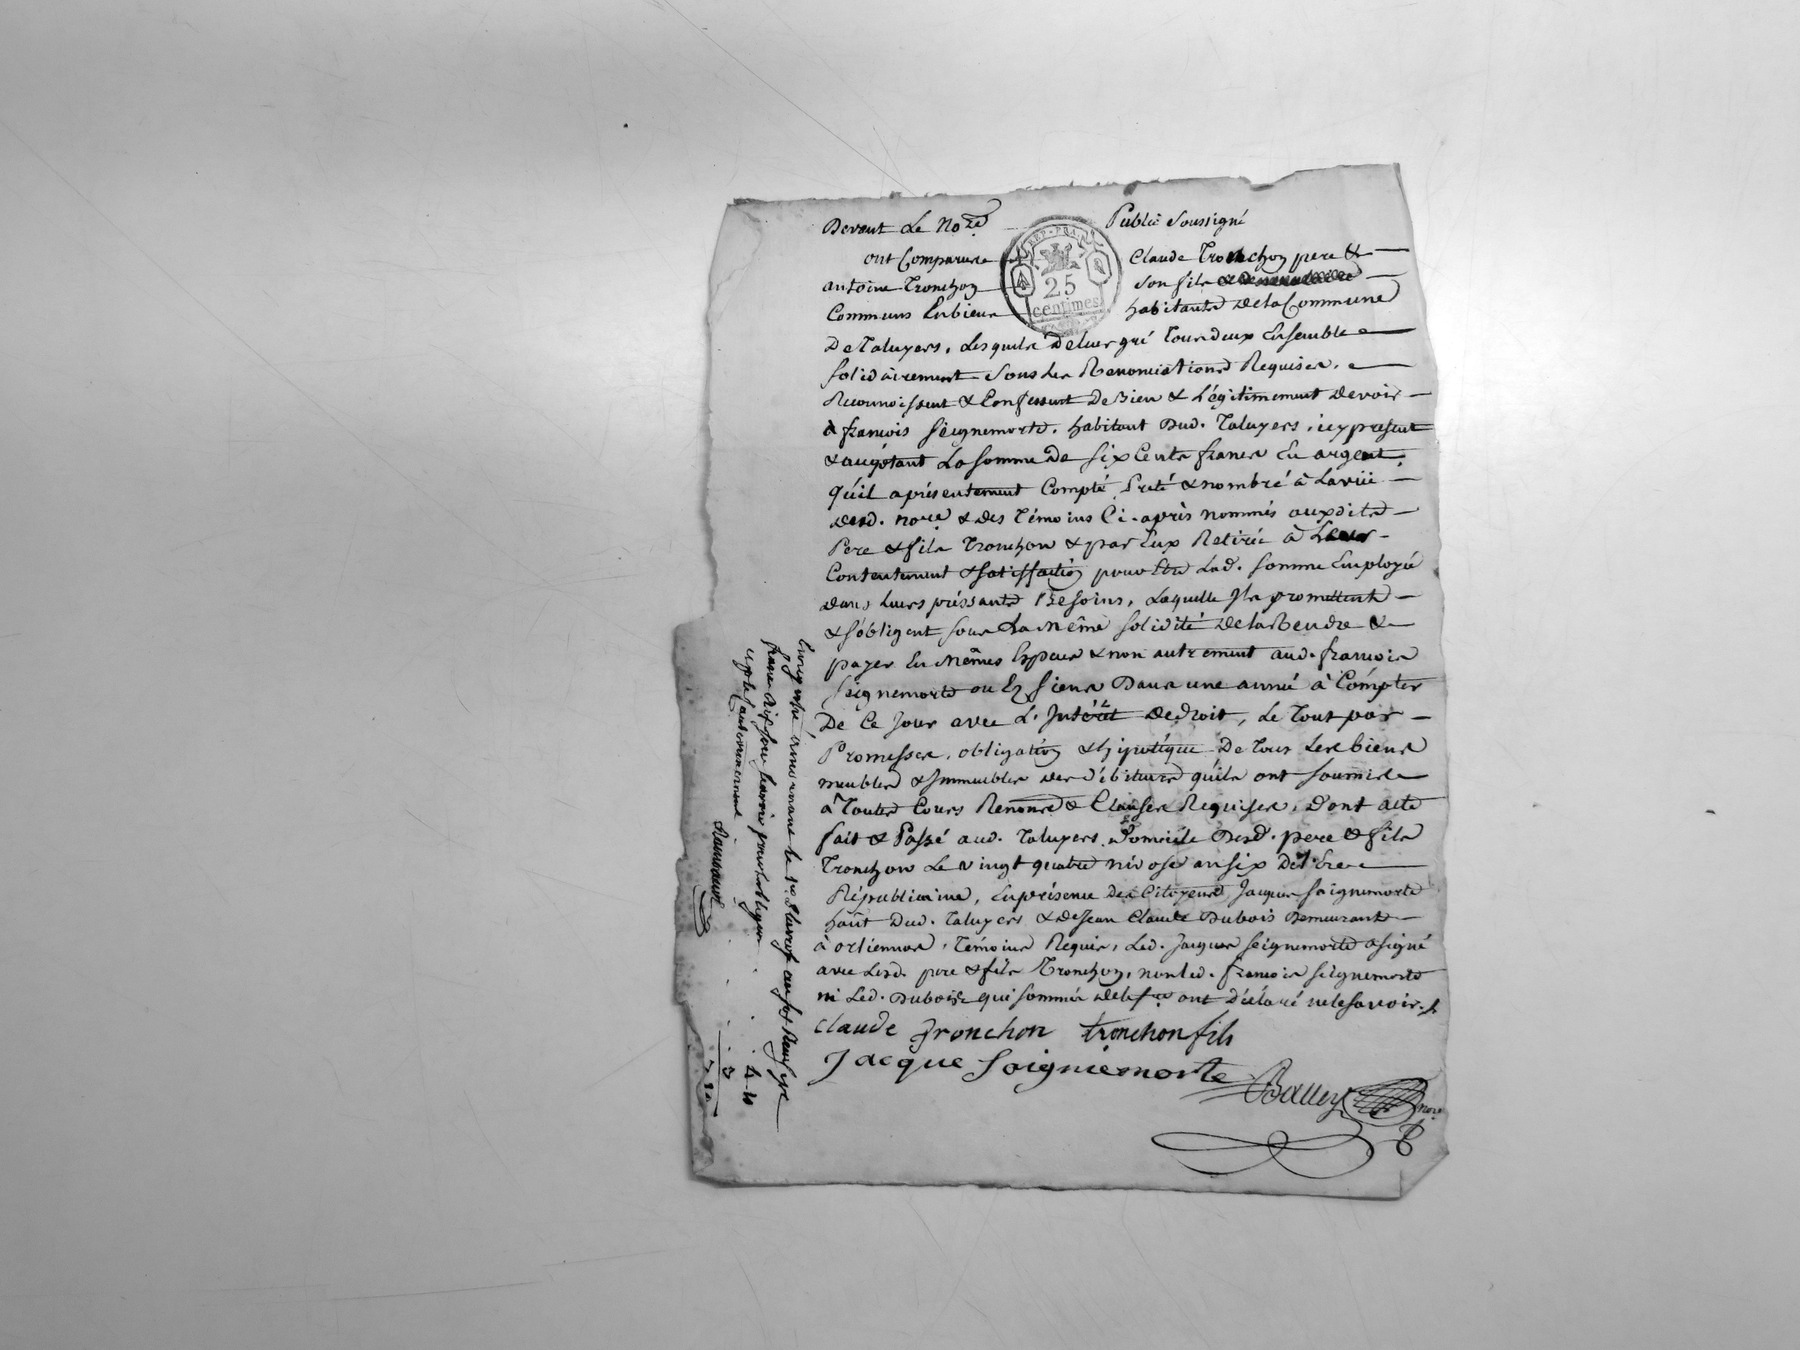 Devant Le No.re Public Soussigné
ont Comparus Claude Tronchon pere &
antoine Tronchon son fils
Communs En biens habitants de la Commune
De Taluyers, Lesquels de leur gré tous deux Ensemble
solidairement sous les Renonciations Requises,
Reconnoissent & Confessent De bien & Légitimement devoir
à françois seignemorte, habitant Dud. Taluyers, icy present
& acceptant La somme De six Cents francs En argent,
qu'il a présentement Compté, Preté & nombré à La vüe
desd. no.re & des Témoins Ci-après nommés auxdits
Pere & fils Tronchon & par Eux Retirée à Leur
Contentement & satisfaction pour Etre Lad. somme Employée
dans leurs pressants Besoins, Laquelle Ils promettent
& s'obligent sous La Même solidité de la Rendre &
payer En Mêmes Especes & non autrement aud. françois
seignemorte ou Ez siens Dans une année à Compter
De Ce Jour avec L'Intérêt de droit, Le Tout par
Promesses, obligation & hipotéque De Tous Les biens
meubles & Immeubles des Débiteurs qu'ils ont soumis
à Toutes Cours Renonce & Clauses Requises, Dont acte
fait & Passé aud. Taluyers Domicile Desd. pere & fils
Tronchon Le vingt quatre nivose an six De l'Ere
Républicaine, En présence Des Citoyens Jacques saignemorte
haût Dud. Taluyers & de Jean Claude Dubois Demeurant
à orliennas, Témoins Requis, Led. Jacques seignemorte a signé
avec Lesd. pere & fils Tronchon, non Led. françois seignemorte
ni Led. Dubois qui sommés de le f.re ont Déclaré ne le savoir.
Claude Tronchon tronchon fils
Jacque Soigniemorte
Balley nore
REP. FRA.
25
centimes
Enregistré à mornant le 1er Pluviose an six Reçu six
francs